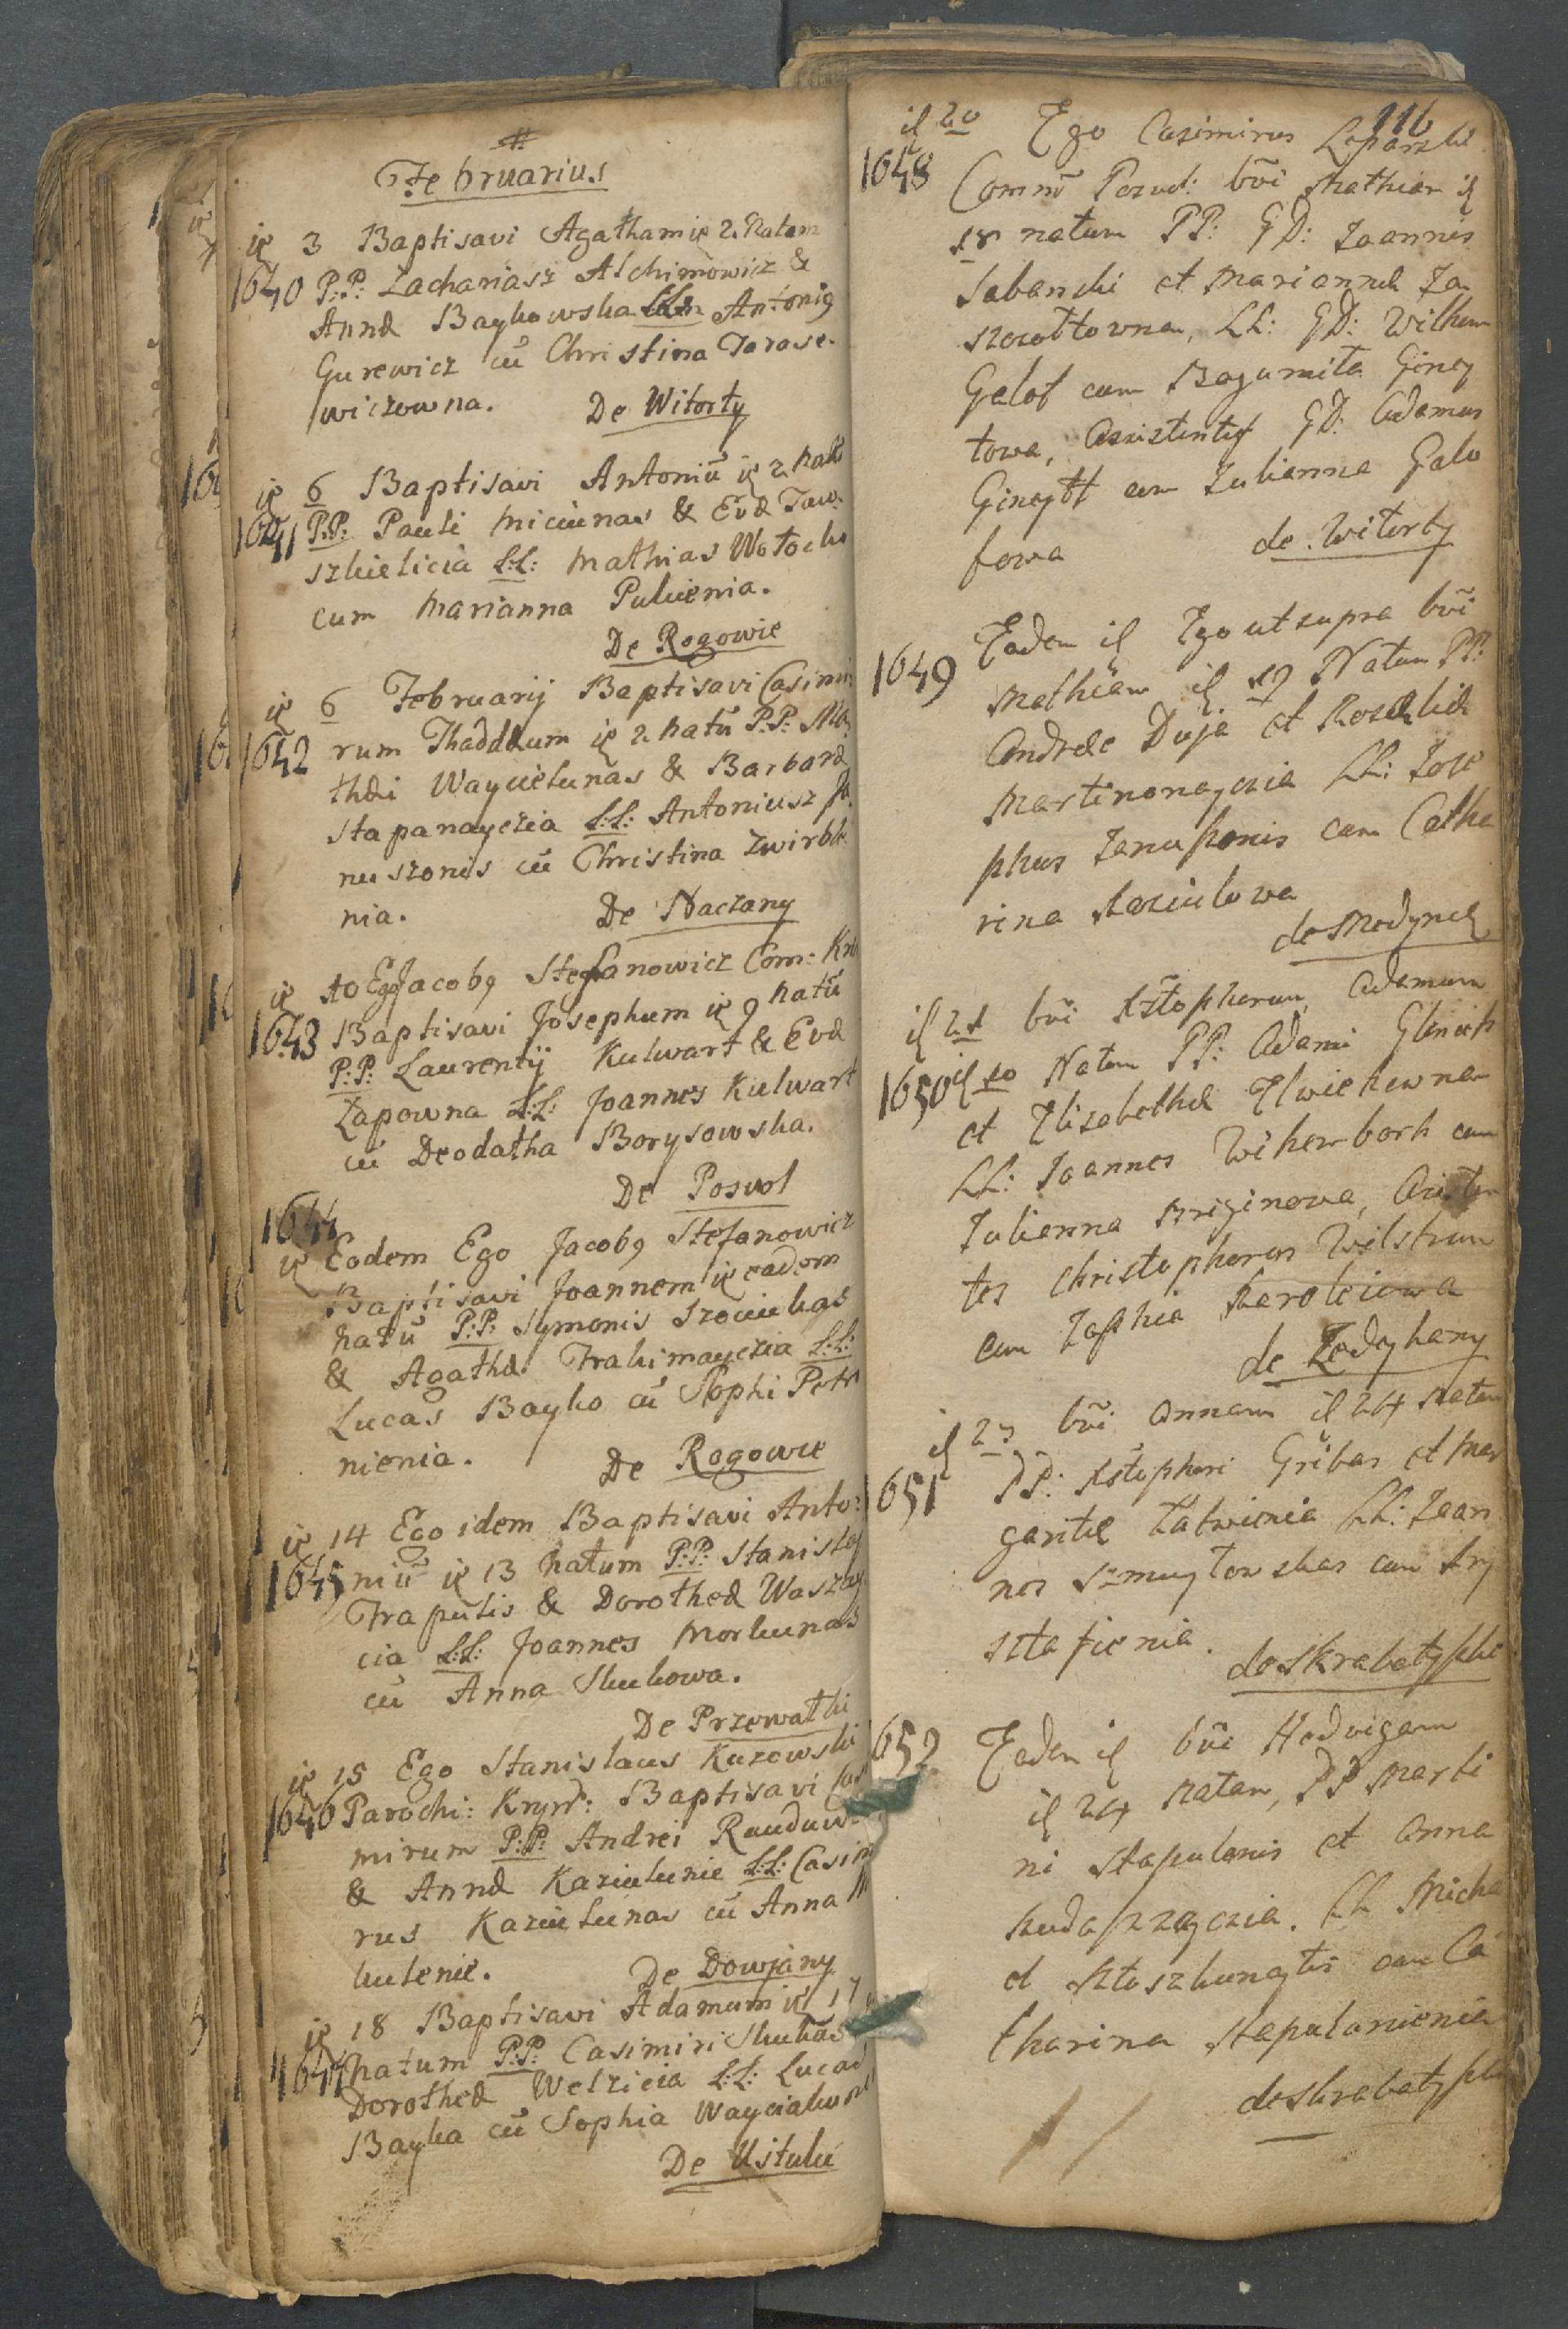 #
Februarius
ię 3 Baptisavi Agatham ię 2 Natam
1640 P:P: Zachariasz Alchimowicz &
Annæ Baykowska LL: Antoni9
Gurewicz cū Christina Tarase-
wiczowna. De Witorty
ię 6 Baptisavi Antoniū ię 2 natū
1641 P:P: Pauli Miciunas & Evæ Taw-
szkielicia L:L: Mathias Wołocko
cum Marianna Pukienia.
De Rogowie
ię 6 Februarij Baptisavi Casimi:
1642 rum Thaddæum ię 2 natū P:P: Ma
thæi Wayciekunas & Barbaræ
Stapanayczia L:L: Antoniusz Ja
nuszonis cū Christina Zwirbli
nia. De Naczany
ię 10 Ego Jacob9 Stefanowicz Com: Kr
1643 Baptisavi Josephum ię 9 natū
P:P: Laurentij Kulwart & Evæ
Łapowna L:L: Joannes Kulwart
cū Deodatha Borysowska.
De Poswol
1644
ię Eodem Ego Jacob9 Stefanowicz
Baptisavi Joannem ię eadem
natū P:P: Symonis Szociukas
& Agathæ Trakimayczia L:L:
Lucas Bayko cū Sophi Petr
nienia. De Rogowie
ię 14 Ego idem Baptisavi Anto:
1645 niū ię 13 natum P:P: Stanislaj
Trapulis & Dorotheæ Waszay
cia L:L: Joannes Morkunas
cū Anna Skukowa.
De Przewałki
ię 15 Ego Stanislaus Kuzowski
1646 Parochi: Krynč: Baptisavi Cas
mirum P:P: Andrei Rauduw
& Annæ Kaziukunie L:L: Casim
rus Kaziukunas cū Anna
kulenie. De Dowjany
ię 18 Baptisavi Adamum ię 17
1647 natum P:P: Casimiri Skukas
Dorotheæ Welzicia L:L: Lucas
Bayka cū Sophia Wayciakun
De Ustuku
116
ię 20 Ego Casimirus Leparski
1648 Comm̄ Poswol: bv̄i Mathiam ię
18 natum PP: GD: Joannis
Sabanski et Mariannæ Ja
szczołtowna, LL: GD: Wilhem
Gelof cum Bogumiła Giney
towa, Assistentes GD: Adamus
Gineytt cum Julianna Galo
fowa de Witorty
1649 Eadem ię Ego ut supra bv̄i
Mathiam ię 19 Natum PP:
Andreæ Duja et Rosaliæ
Martinonayczia LL: Jose
phus Januszonis cum Catha
rina Kaziulowa
de Medynck
ię 21 bv̄i Xstopherum Adamum
1650 ię 20 Natum PP: Adami Glinick
et Elisabethæ Elwichowna
LL: Joannes Wikenbork cum
Julianna Bryginowa, Assisten
tes Christopherus Wilstrum
cum Zophia Karoleiowa
de Zodeykany
ię 25 bv̄i Annam ię 24 Natam
1651 PP: Xstopheri Gribas et Mar
garitæ Łatwienia LL: Joan
nes Szmuytowskas cum Kry
sztafienia.
de Skrabotyszki
1652 Eadem ię bv̄i Hedvigam
ię 24 Natam, PP Marti
ni Stapulonis et Anna
Rudaszzayczia. LL Micha
el Ktoszkunaytis cum Ca
tharina Stapulonienia
de Skrabotyszki